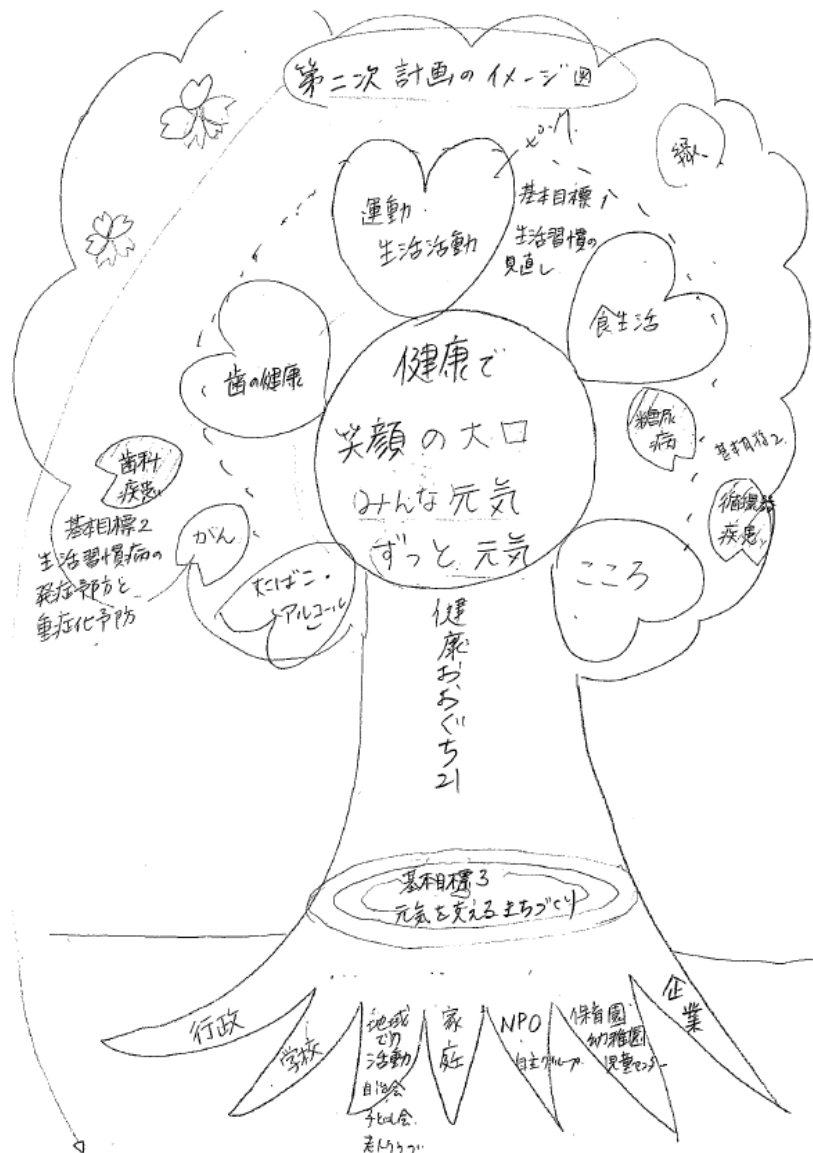 第二次計画のイメージ図
ピンク
緑
運動・
生活活動
基本目標1
生活習慣の
見直し
食生活
歯の健康
健康で
笑顔の大口
みんな元気
ずっと元気
糖尿
病
基本目標2
循環器
疾患
歯科
疾患
基本目標2
生活習慣病の
発症予防と
重症化予防
がん
たばこ・
アルコール
こころ
健康おおぐち21
基本目標3
元気を支えるまちづくり
行政
学校
地域
での
活動
自治会
子ども会
老人クラブ
家庭
NPO
自主グループ
保育園
幼稚園
児童センター
企業